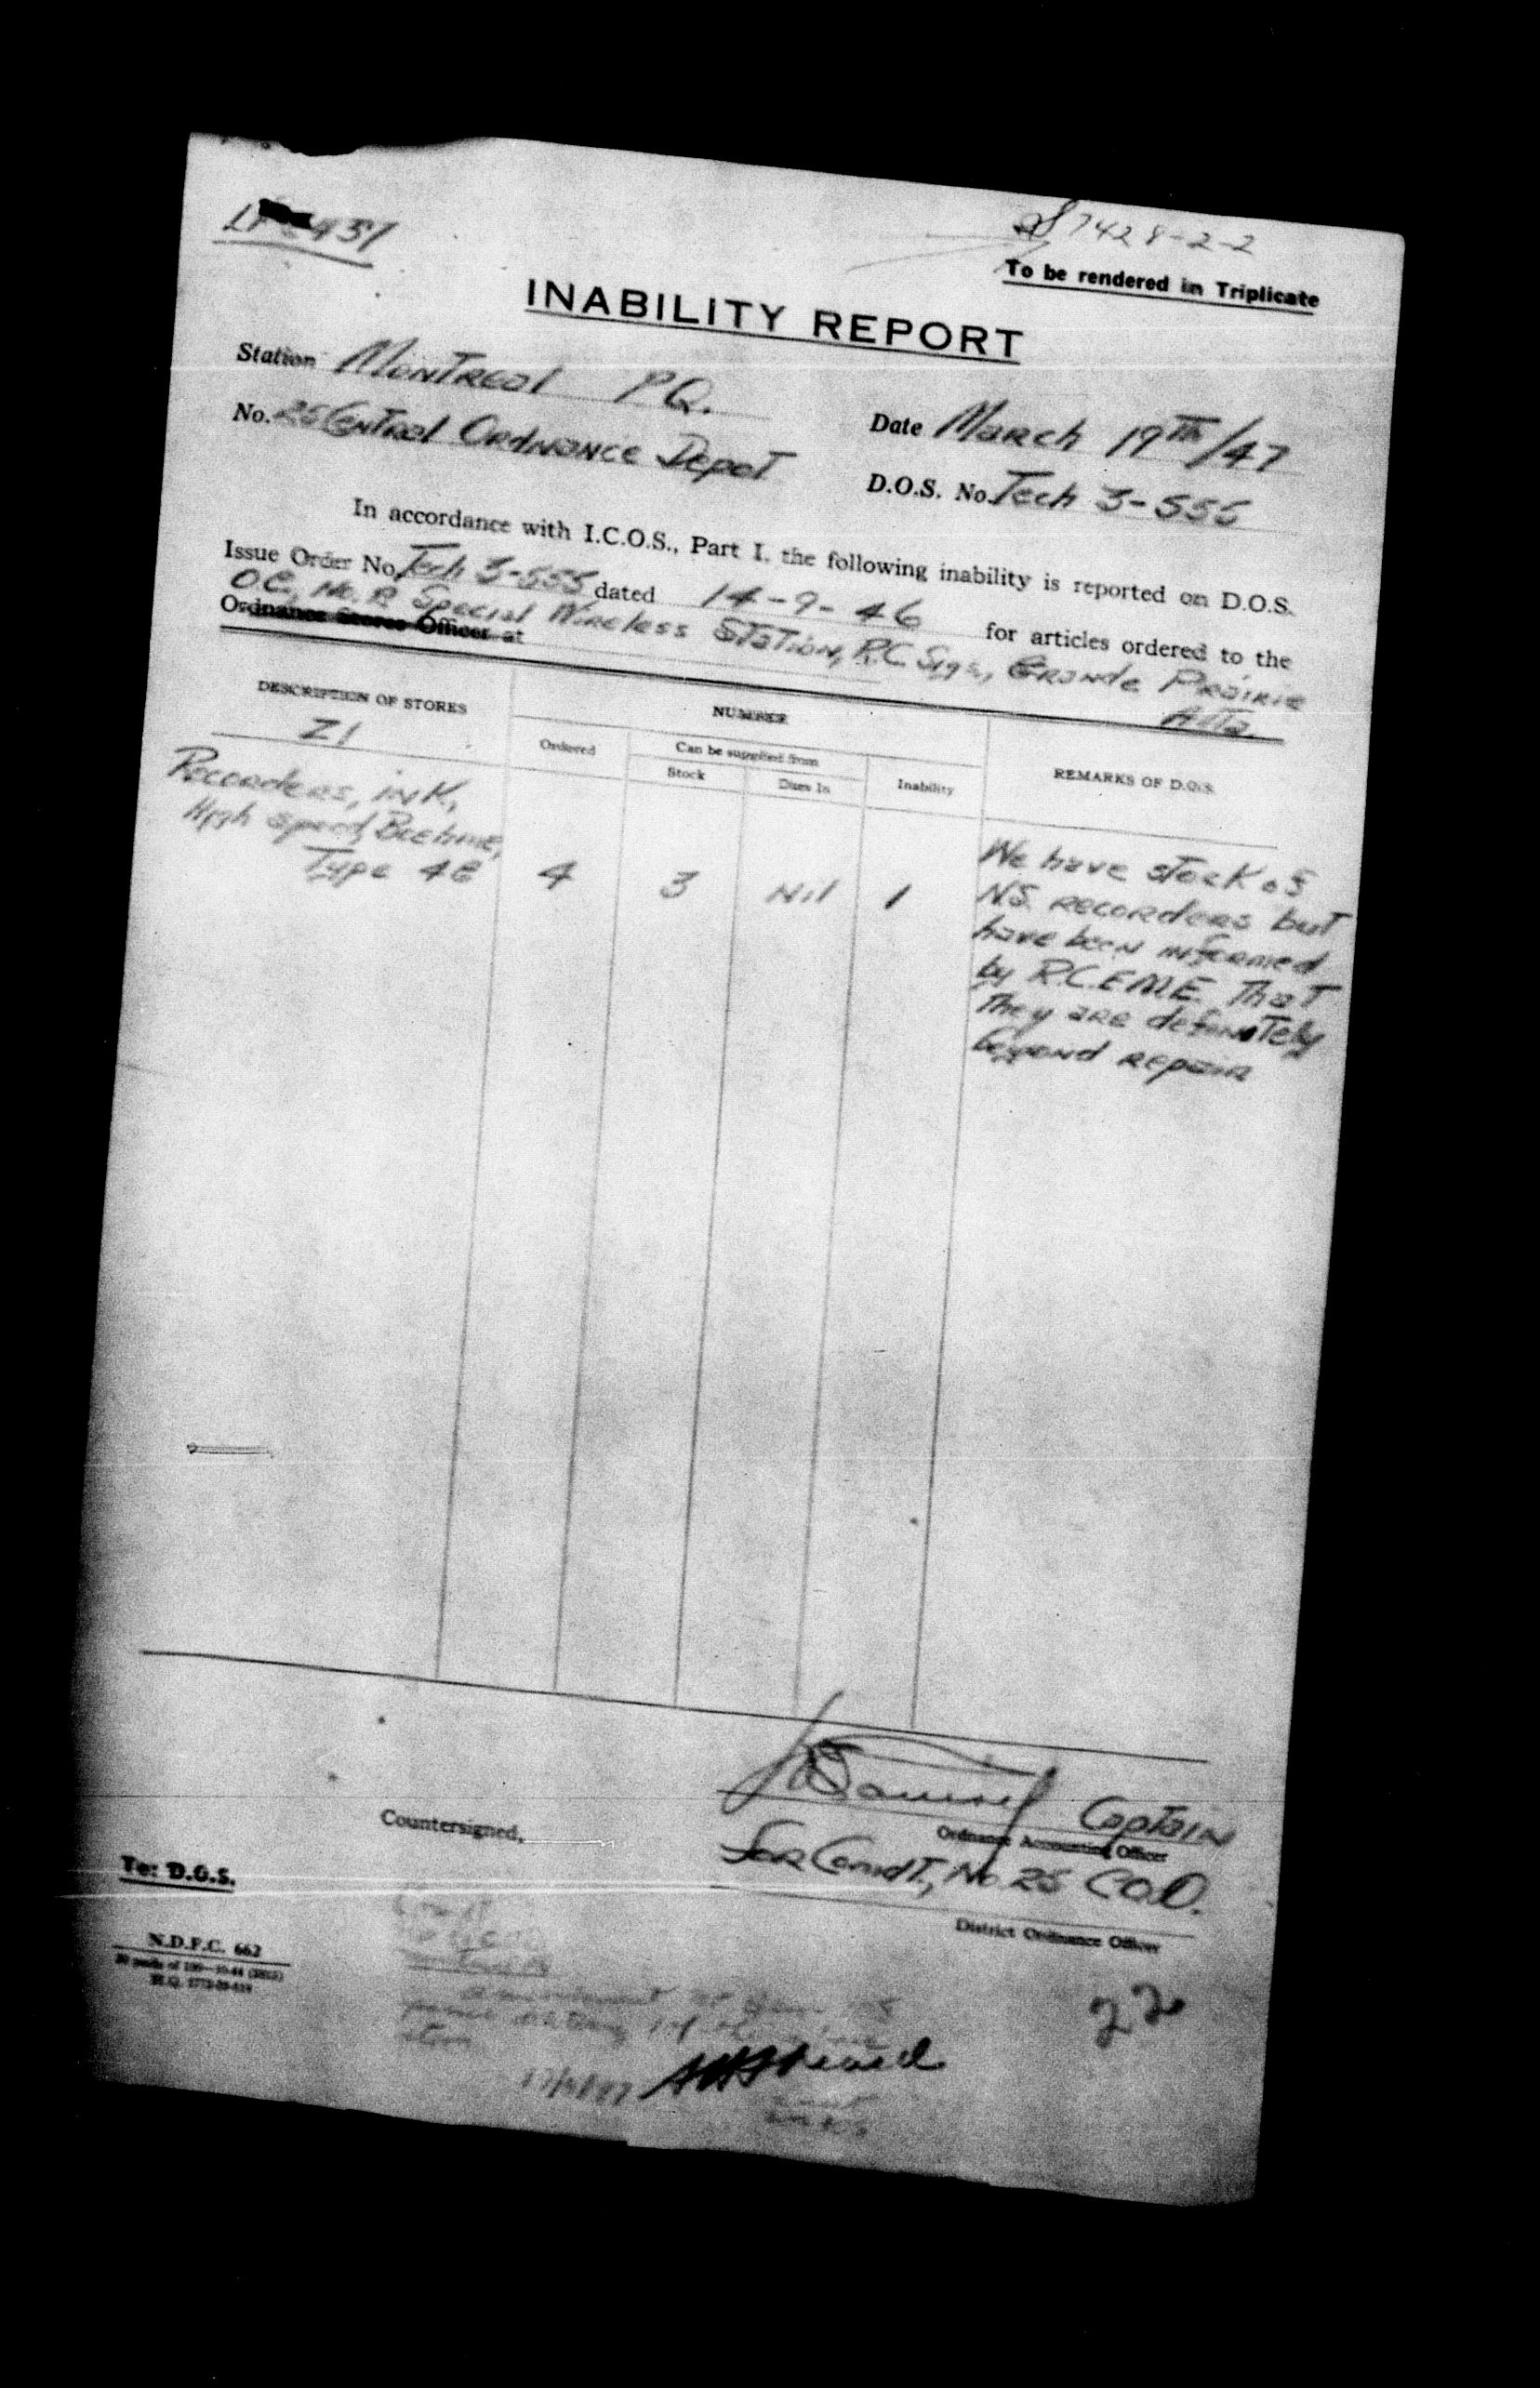 7428-2-2
To be rendered in Triplicate
INABILITY REPORT
Station Montreal P.Q.
Date March 19th/47
No. 25 Central Ordnance Depot
D.O.S. No. Tech 3-555
In accordance with I.C.O.S., Part I, the following inability is reported on D.O.S.
Issue Order No. Tech 3-555 dated 14-9-46 for articles ordered to the
OC, No. 2 Special Wireless Station, R.C. Sigs., Grande Prairie
Alta.
Ordnance Stores Officer at
DESCRIPTION OF STORES
Z1
NUMBER
Ordered
Can be supplied from
Stock
Dues In
Inability
REMARKS OF D.O.S.
Recorders, ink,
High Speed, Boehme,
Type 4E 4 3 Nil 1
We have stock of
N.S. recorders but
have been informed
by R.C.E.M.E. That
They are definitely
beyond repair
Captain
Ordnance Accounting Officer
Countersigned,
For Comdt., No. 25 C.O.D.
District Ordnance Officer
To: D.O.S.
N.D.F.C. 662
22